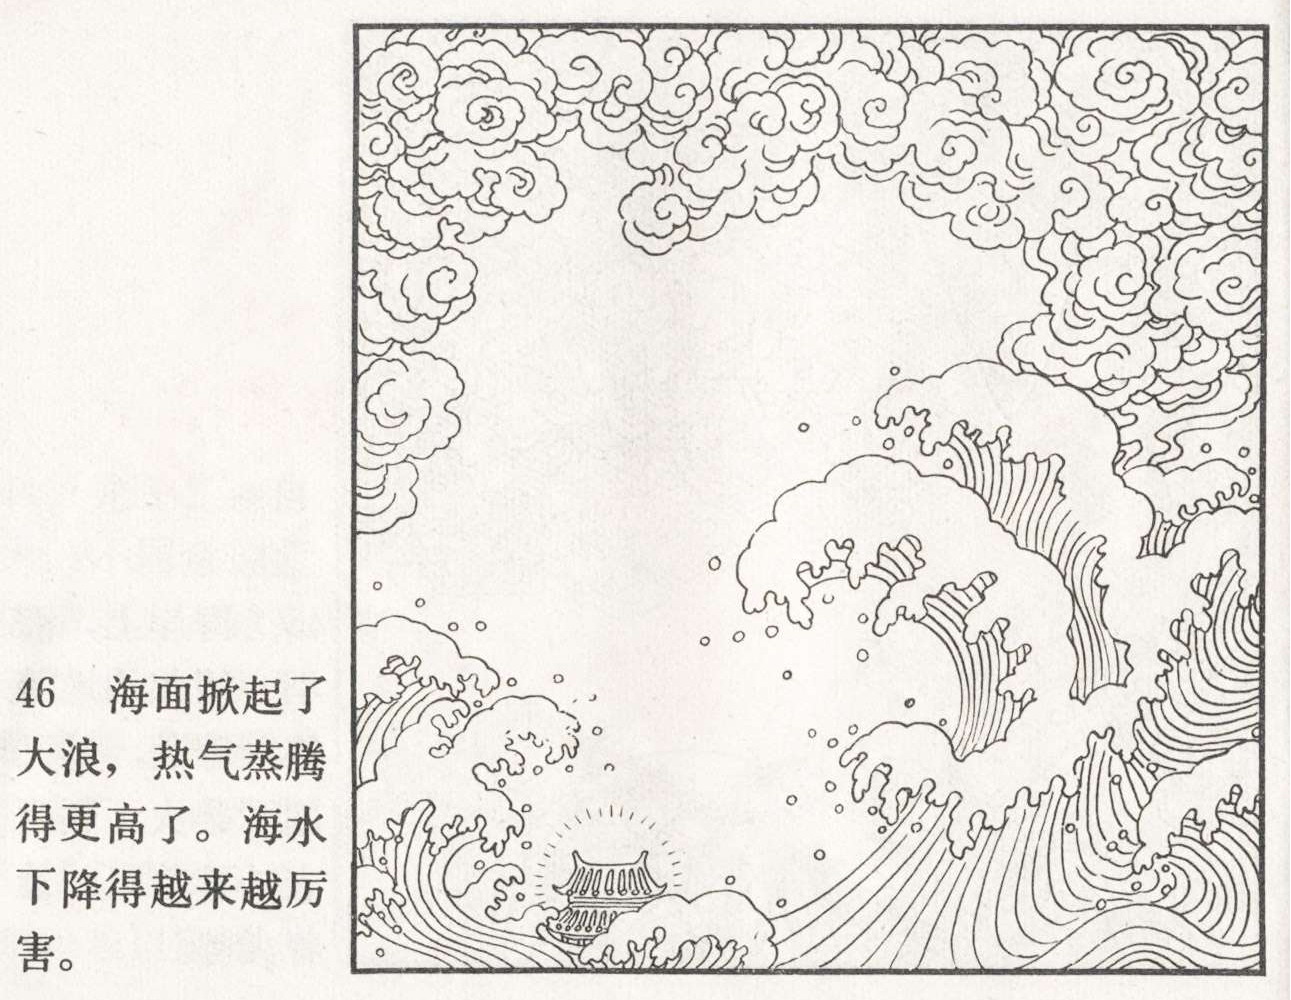 46 海面掀起了
大浪，热气蒸腾
得更高了。海水
下降得越来越厉
害。